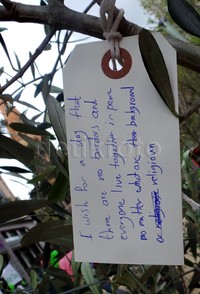 I wish for a day that
there are no borders and
everyone live together in peace
no matter what are the background
or religion